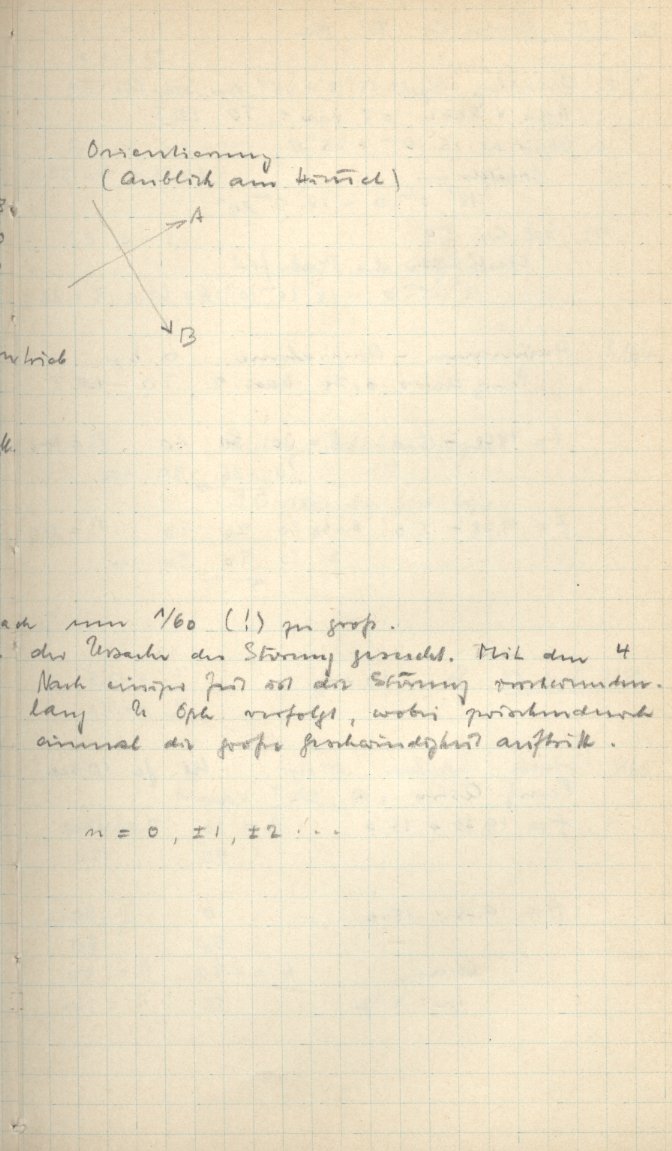 Orientierung
(Anblick am Himmel)
A
B
trieb
um 1/60 (!) zu groß.
der Ursache der Störung gesucht. Mit dem 4
Nach einiger Zeit ist die Störung verschwunden.
lang U Oph verfolgt, wobei zwischendurch
einmal die große Geschwindigkeit auftritt.
n = 0, ±1, ±2 ...